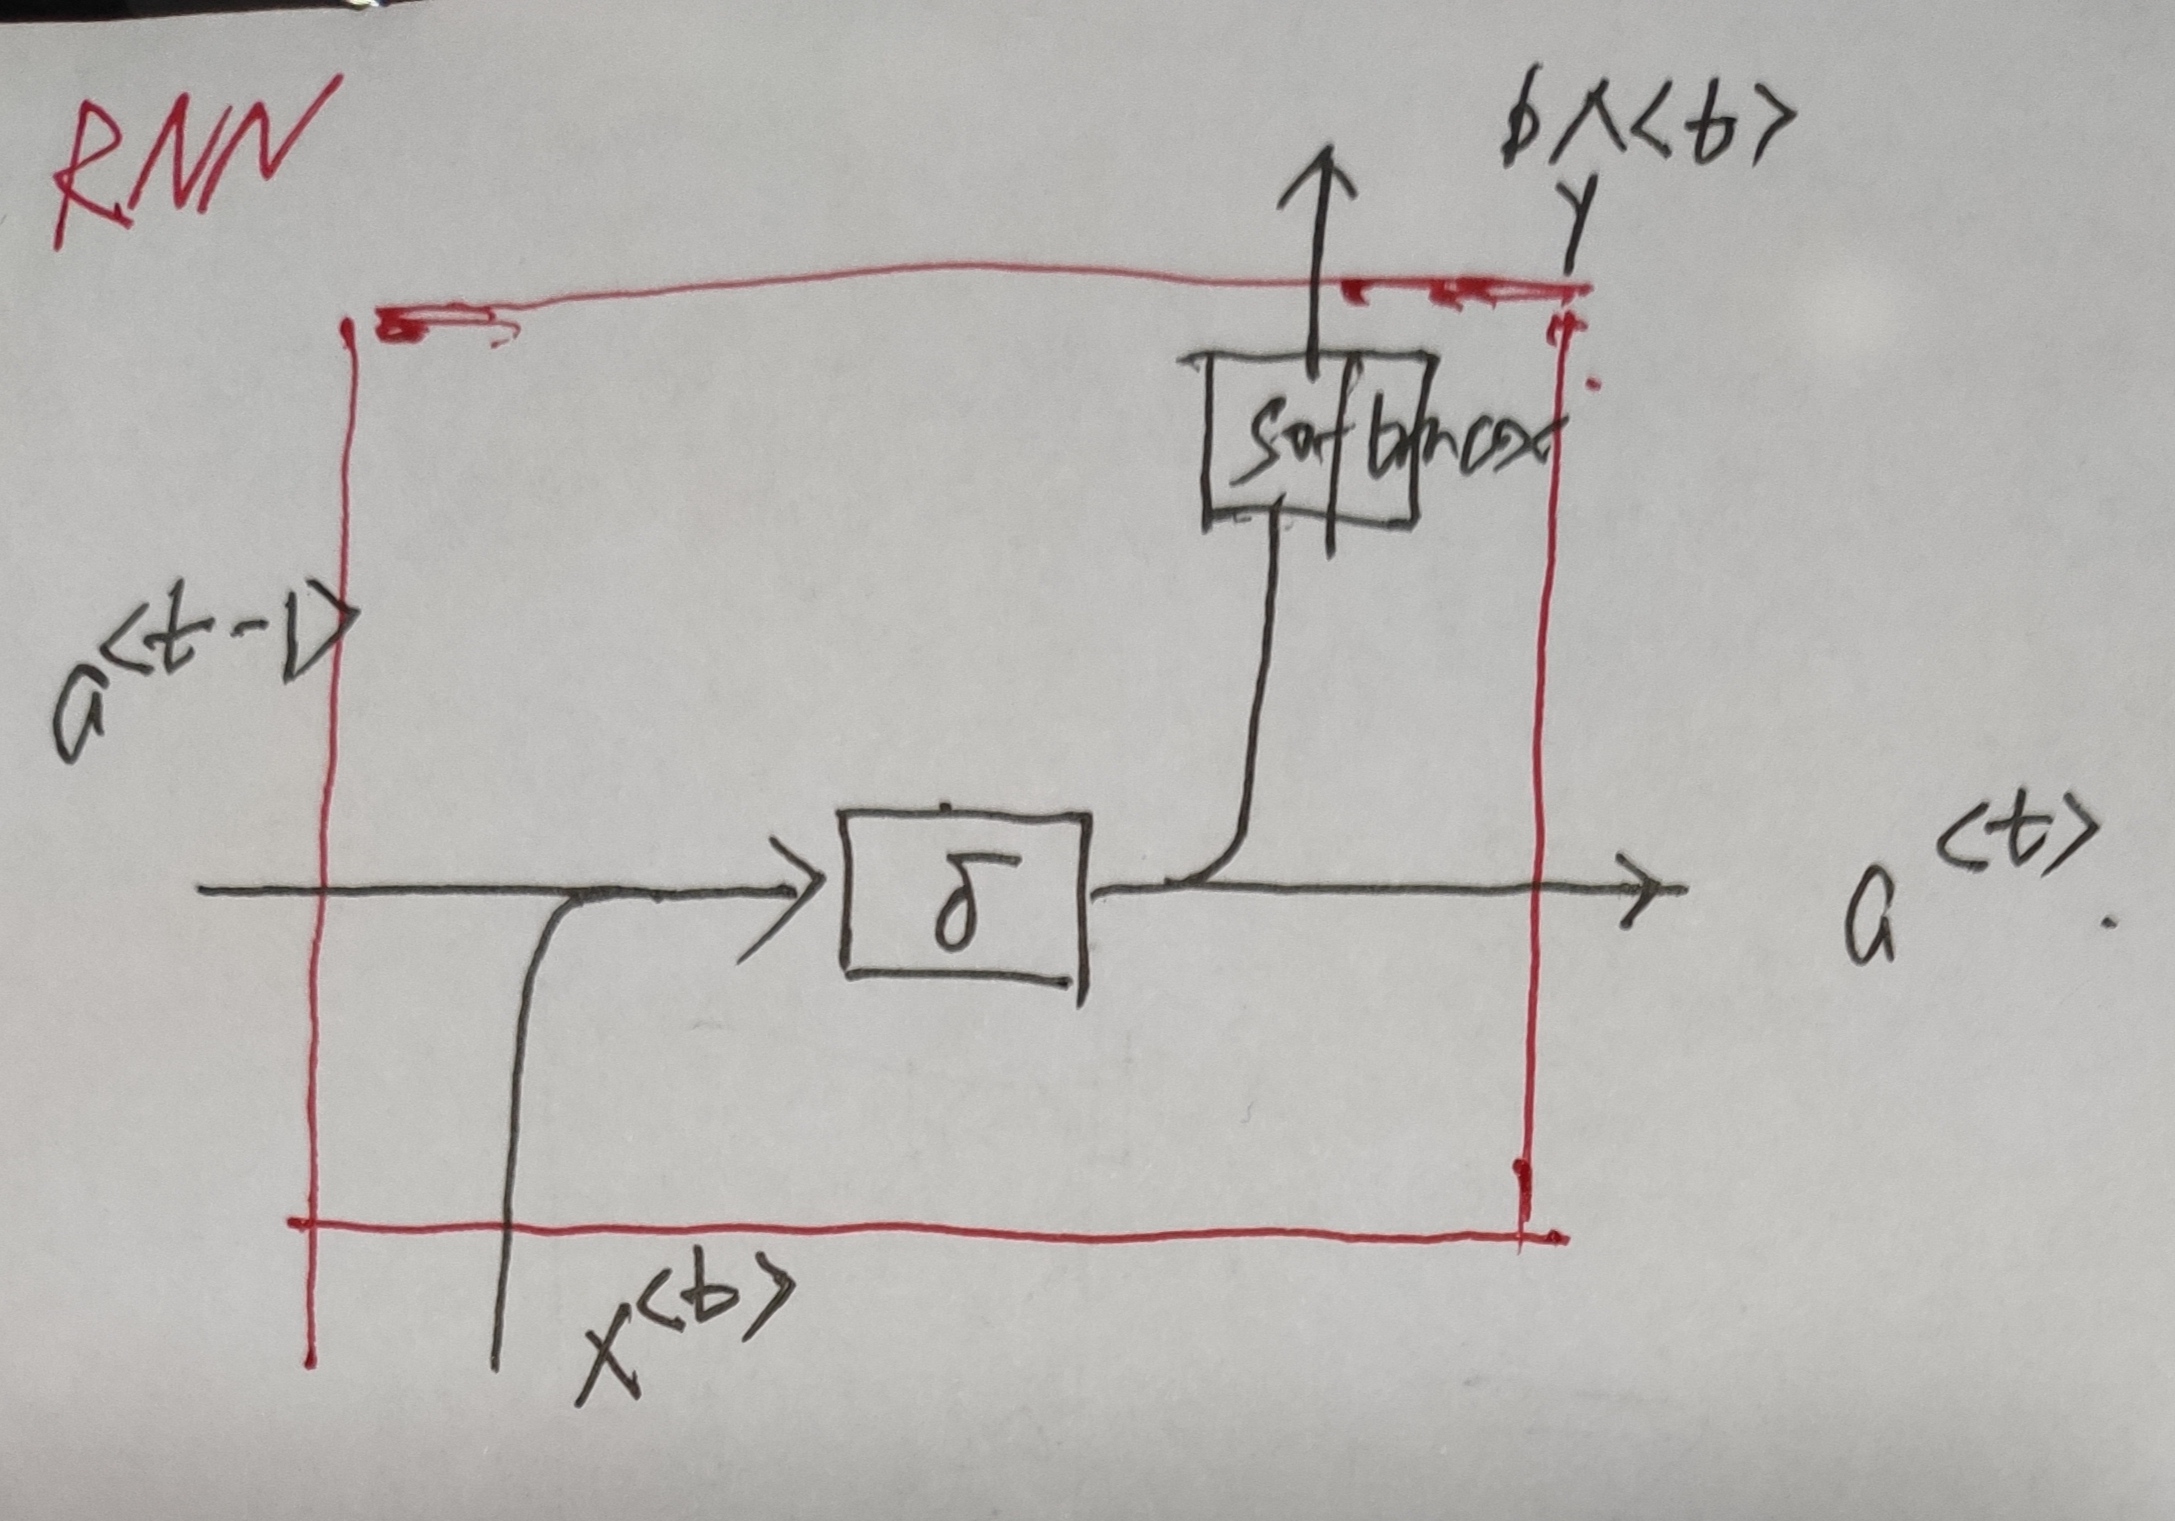 RNN
ŷ<t>
softmax
a<t-1>
δ
a<t>.
x<t>